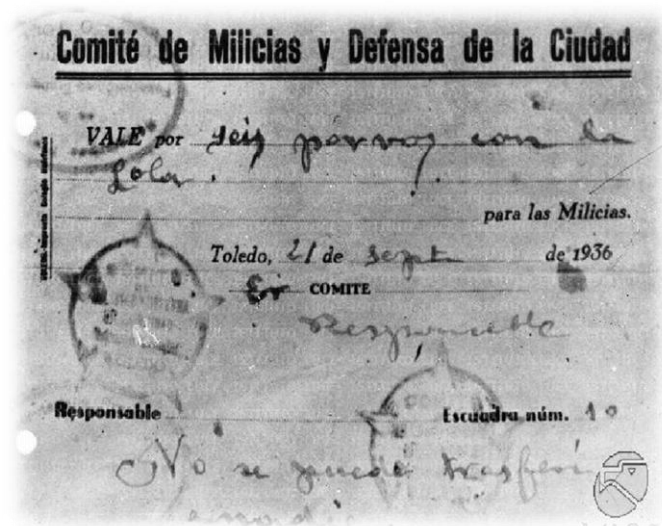 Comité de Milicias y Defensa de la Ciudad
VALE por Seis porvos con la
Lola.
para las Milicias.
Toledo, 21 de Sept de 1936
COMITE
Responsable
Responsable Escuadra núm. 10
No se puede trasferi